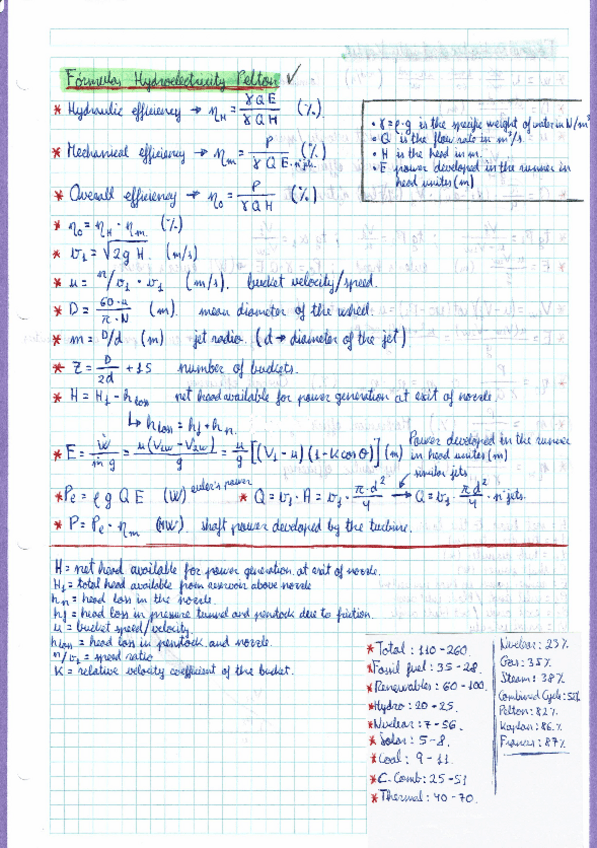 Fórmulas Hydroelectricity Pelton ✓
* Hydraulic efficiency → η_H = γQE / γQH (%)
* Mechanical efficiency → η_m = P / γQE·nºjets (%)
* Overall efficiency → η_o = P / γQH (%)
• γ = ρ·g is the specific weight of water in N/m³
• Q is the flow rate in m³/s.
• H is the head in m.
• E power developed in the runner in
head unites (m)
* η_o = η_H · η_m (%)
* v₁ = √2gH (m/s)
* u = u/v₁ · v₁ (m/s). bucket velocity/speed.
* D = 60·u / π·N (m). mean diameter of the wheel.
* m = D/d (m) jet radio. (d → diameter of the jet)
* Z = D/2d + 15 number of buckets.
* H = H₁ - h_loss net head available for power generation at exit of nozzle
↳ h_loss = h_f + h_n.
* E = Ẇ/ṁg = u(V₁w - V₂w)/g = u/g [(V₁ - u)(1 - K cosθ)] (m) Power developed in the runner
in head unites (m)
similar jets
* P_e = ρ g Q E (W) euler's power * Q = v₁ · A = v₁ · π·d²/4 → Q = v₁ · πd²/4 · nº jets.
* P = P_e · η_m (MW). shaft power developed by the turbine.
H = net head available for power generation at exit of nozzle.
H₁ = total head available from reservoir above nozzle
h_n = head loss in the nozzle.
h_f = head loss in pressure tunnel and penstock due to friction.
u = bucket speed/velocity.
h_loss = head loss in penstock and nozzle.
u/v₁ = speed ratio
K = relative velocity coefficient of the bucket.
* Total: 110-260.
* Fossil fuel: 35-28.
* Renewables: 60-100.
* Hydro: 20-25.
* Nuclear: 7-56.
* Solar: 5-8.
* Coal: 9-11.
* C. Comb: 25-51
* Thermal: 40-70.
Nuclear: 23%
Gas: 35%
Steam: 38%
Combined Cycle: 52%
Pelton: 82%
Kaplan: 86%
Francis: 87%